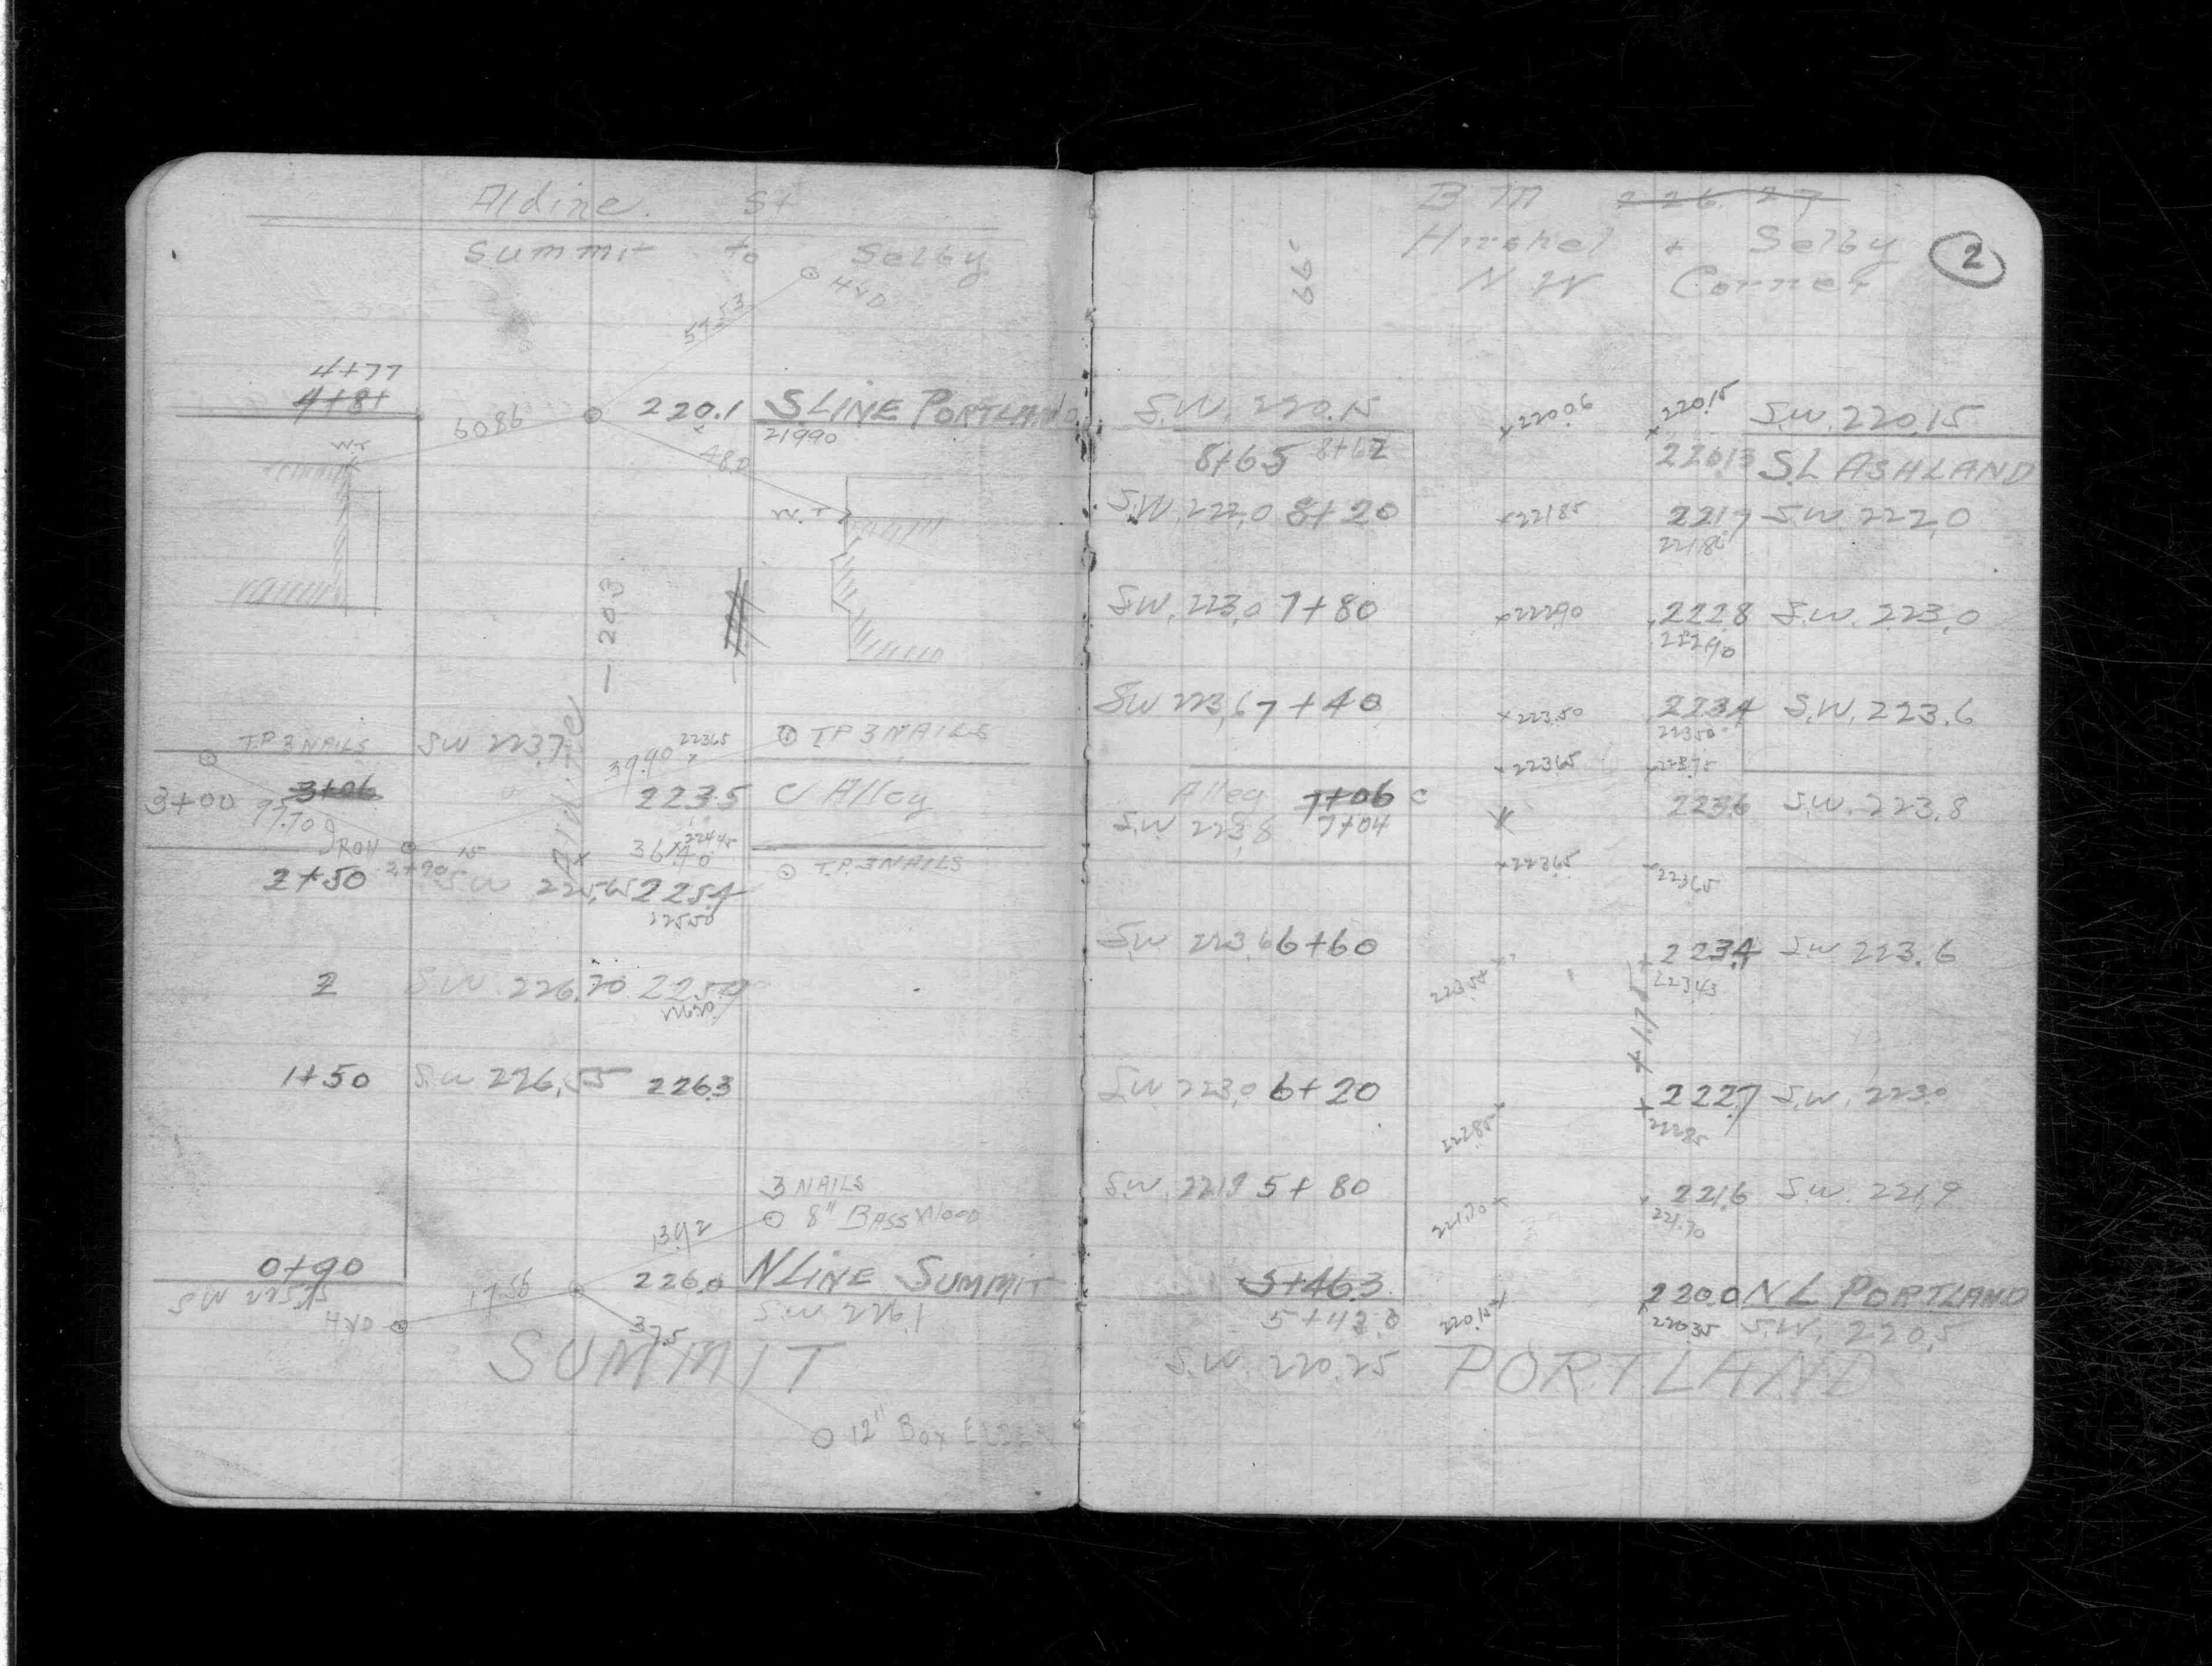 Aldine St
Summit to Selby
HYD
57.53
4+77
4+81
60.86
220.1 S LINE PORTLAND
219.90
48.0
W.T
W.T
— 20.3
T.P. 3 NAILS SW 223.7
39.90 223.65
T.P 3 NAILS
3+00 3+06
223.5 C Alley
77.70
IRON
Aldine
36.40 224.45
2+90
T.P. 3 NAILS
2+50 SW 225.65 225.4
225.50
2 S.W. 226.70 225.9
1+50 S.W 226.55 226.3
3 NAILS
8" BASSWOOD
13.92
0+90
226.0 N LINE SUMMIT
17.56
S.W 226.1
HYD
37.5
SUMMIT
12" BOX ELDER
B M 226.27
Hirshel + Selby
N W Corner
2
66'
S.W. 220.15 220.06 220.15 S.W. 220.15
8+65 8+62 220.13 S.L ASHLAND
S.W. 222.0 8+20 221.85 221.7 S.W. 222.0
221.80
S.W. 223.0 7+80 222.90 222.8 S.W. 223.0
222.90
S.W 223.6 7+40 223.50 223.4 S.W. 223.6
223.50
223.65 223.75
Alley 7+06 C 223.6 S.W. 223.8
S.W 223.8 7+04
223.65 223.65
S.W. 223.6 6+60 223.4 S.W 223.6
223.54 223.43
+ 1.78
S.W. 223.0 6+20 222.7 S.W. 223.0
222.85 222.85
S.W. 221.9 5+80 221.6 S.W. 221.9
221.70 221.70
5+46.3 220.0 N L PORTLAND
5+43.0 220.15 220.35 S.W. 220.5
S.W. 220.25 PORTLAND